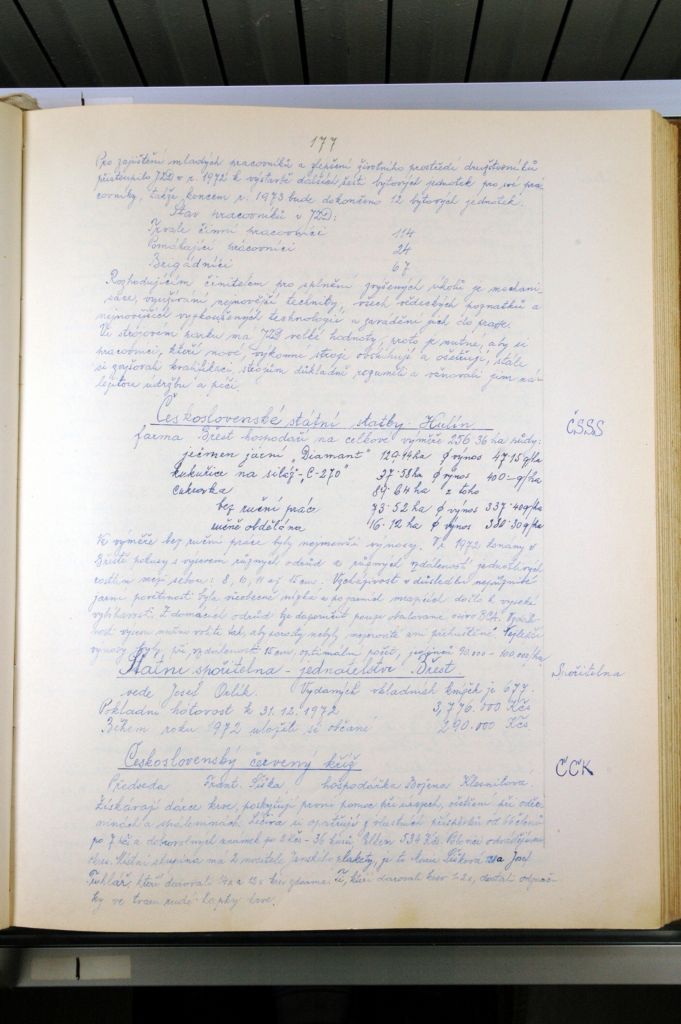 177
Pro zajištění mladých pracovníků a zlepšení životního prostředí družstevníků
přistoupilo JZD v r. 1972 k výstavbě dalších šesti bytových jednotek pro své pra-
covníky, takže koncem r. 1973 bude dokončeno 12 bytových jednotek.
Stav pracovníků v JZD:
Trvale činní pracovníci 114
Pomáhající pracovníci 24
Brigádníci 67
Rozhodujícím činitelem pro splnění zvýšených úkolů je mechani-
sace, využívání nejnovější techniky, všech vědeckých poznatků a
nejnovějších vyzkoušených technologií a zavádění jich do praxe.
Ve strojovém parku má JZD velké hodnoty, proto je nutné, aby si
pracovníci, kteří nové, výkonné stroje obsluhují a ošetřují, stále
si zvyšovali kvalifikaci, strojům důkladně rozuměli a věnovali jim ná-
ležitou údržbu a péči.
Československé státní statky Hulín ČSSS
farma Břest hospodaří na celkové výměře 256.36 ha půdy:
ječmen jarní „Diamant" 129.14 ha ϕ výnos 47.15 q/ha
kukuřice na siláž - „C-270" 37.58 ha ϕ výnos 400.- q/ha
cukrovka 89.64 ha z toho
bez ruční práce 73.52 ha ϕ výnos 337.40 q/ha
ručně obdělána 16.12 ha ϕ výnos 380.30 q/ha
Ve výměře bez ruční práce byly nejmenší výnosy. V r. 1972 konány v
Břestě pokusy s výsevem různých odrůd a různých vzdáleností jednotlivých
rostlin mezi sebou: 8, 10, 11 až 15 cm. Vzcházivost v důsledku nepříznivé
jarní povětrnosti byla všeobecně nízká a po jarních mrazících došlo k vysoké
Z domácích odrůd lze doporučit pouze obalované osivo
výsevu nutno volit tak, aby porosty nebyly ani přehuštěné. Nejlepší
výnosy byly při vzdálenosti 15 cm, optimální počet jedinců 90.000 - 100.000/ha
Státní spořitelna - jednatelství Břest Spořitelna
vede Josef Vydaných vkladních knížek je 677.
Pokladní hotovost k 31.12.1972 3,776.000 Kčs
Během roku 1972 uložili si občané 290.000 Kčs
Československý červený kříž ČČK
Předseda Frant. hospodářka Božena
Získávají dárce krve, poskytují první pomoc při úrazech, ošetření při
a
po 7 Kčs a dobrovolných známek po 2 Kčs - 36 534 Kčs.
krve. Místní skupina má 2 nositele Janského plakety, je to Marie a Josef
kteří darovali krev zdarma. Ti, kteří darovali krev dostali odznáč-
ky ve tvaru rudé kapky krve.